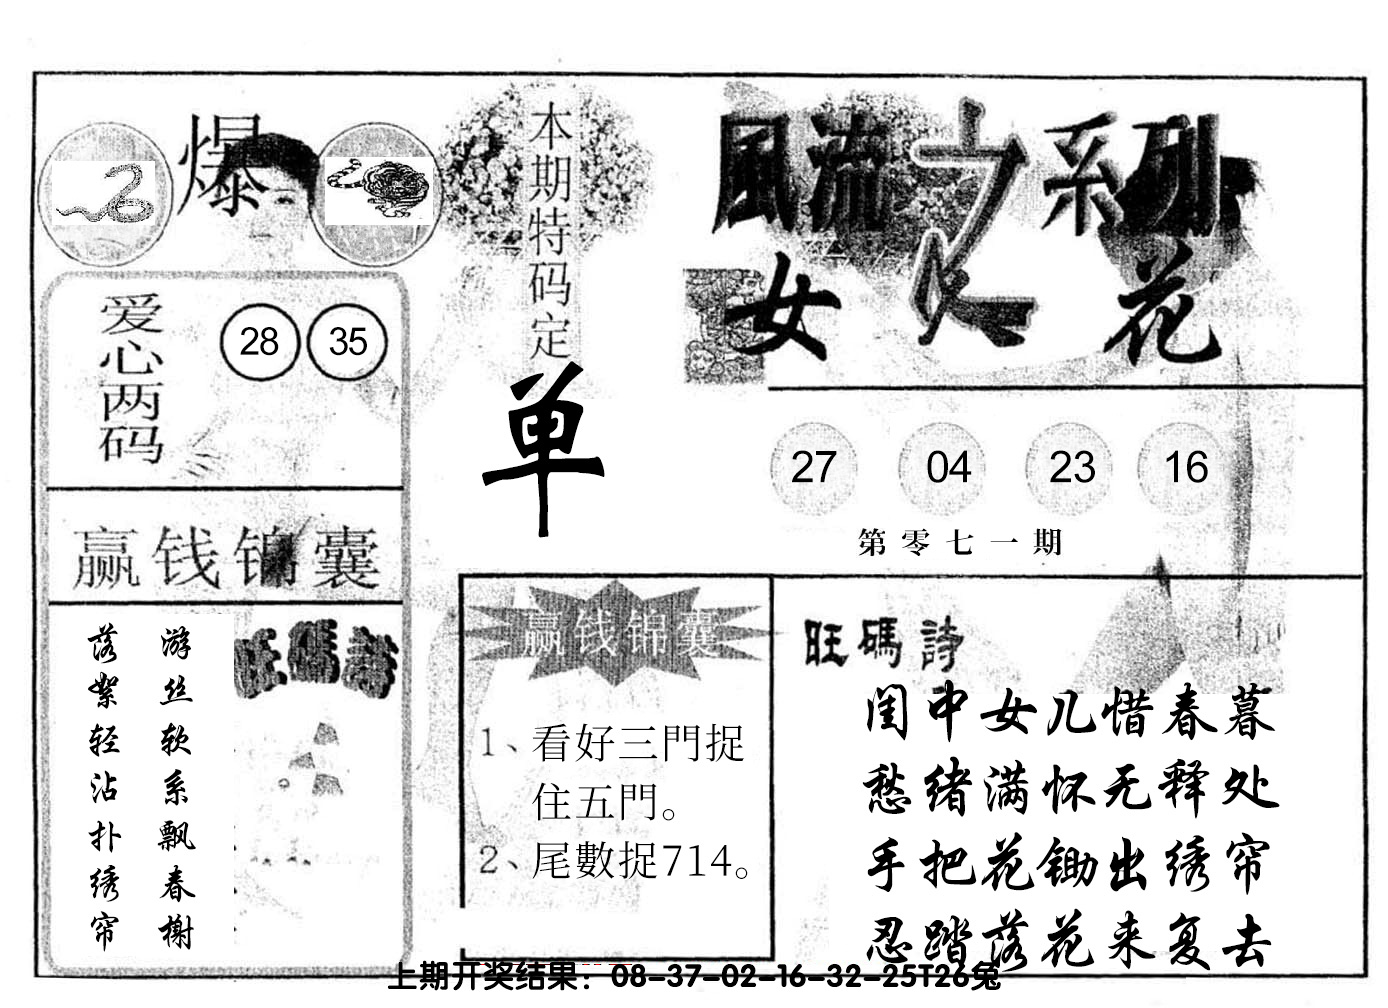 爆
本期特码定
单
風流之系列
女人花
爱心两码
28 35
27 04 23 16
第零七一期
赢钱锦囊
游丝软系飘春榭
落絮轻沾扑绣帘
旺碼詩
赢钱锦囊
1、看好三門捉
住五門。
2、尾數捉714。
旺碼詩
闺中女儿惜春暮
愁绪满怀无释处
手把花锄出绣帘
忍踏落花来复去
上期开奖结果：08-37-02-16-32-25T26兔